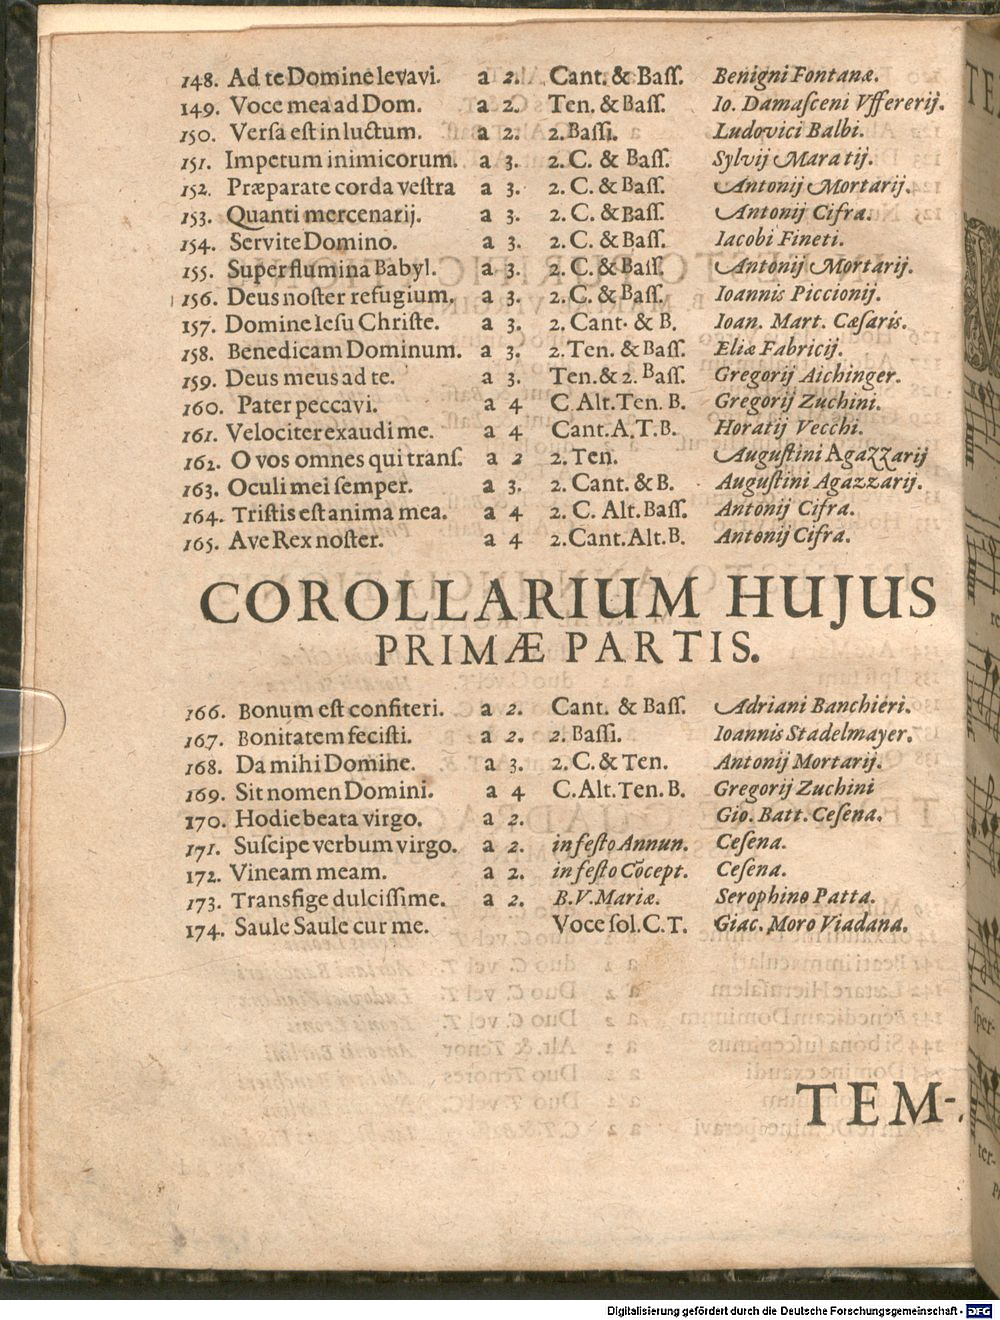 148. Ad te Domine levavi. a 2. Cant. & Baſſ. Benigni Fontanæ.
149. Voce mea ad Dom. a 2. Ten. & Baſſ. Io. Damaſceni Vffererij.
150. Verſa eſt in luctum. a 2. 2. Baſſi. Ludovici Balbi.
151. Impetum inimicorum. a 3. 2. C. & Baſſ. Sylvij Maratij.
152. Præparate corda veſtra a 3. 2. C. & Baſſ. Antonij Mortarij.
153. Quanti mercenarij. a 3. 2. C. & Baſſ. Antonij Cifra.
154. Servite Domino. a 3. 2. C. & Baſſ. Iacobi Fineti.
155. Super flumina Babyl. a 3. 2. C. & Baſſ. Antonij Mortarij.
156. Deus noſter refugium. a 3. 2. C. & Baſſ. Ioannis Piccionij.
157. Domine Ieſu Chriſte. a 3. 2. Cant. & B. Ioan. Mart. Cæſaris.
158. Benedicam Dominum. a 3. 2. Ten. & Baſſ. Eliæ Fabricij.
159. Deus meus ad te. a 3. Ten. & 2. Baſſ. Gregorij Aichinger.
160. Pater peccavi. a 4 C Alt. Ten. B. Gregorij Zuchini.
161. Velociter exaudi me. a 4 Cant. A. T. B. Horatij Vecchi.
162. O vos omnes qui tranſ. a 2 2. Ten. Auguſtini Agazzarij
163. Oculi mei ſemper. a 3. 2. Cant. & B. Auguſtini Agazzarij.
164. Triſtis eſt anima mea. a 4 2. C. Alt. Baſſ. Antonij Cifra.
165. Ave Rex noſter. a 4 2. Cant. Alt. B. Antonij Cifra.
COROLLARIUM HUJUS
PRIMÆ PARTIS.
166. Bonum eſt confiteri. a 2. Cant. & Baſſ. Adriani Banchieri.
167. Bonitatem feciſti. a 2. 2. Baſſi. Ioannis Stadelmayer.
168. Da mihi Domine. a 3. 2. C. & Ten. Antonij Mortarij.
169. Sit nomen Domini. a 4 C. Alt. Ten. B. Gregorij Zuchini
170. Hodie beata virgo. a 2. Gio. Batt. Ceſena.
171. Suſcipe verbum virgo. a 2. in feſto Annun. Ceſena.
172. Vineam meam. a 2. in feſto Cōcept. Ceſena.
173. Transfige dulciſſime. a 2. B. V. Mariæ. Serophino Patta.
174. Saule Saule cur me. Voce ſol. C. T. Giac. Moro Viadana.
TEM-
Digitalisierung gefördert durch die Deutsche Forschungsgemeinschaft - DFG